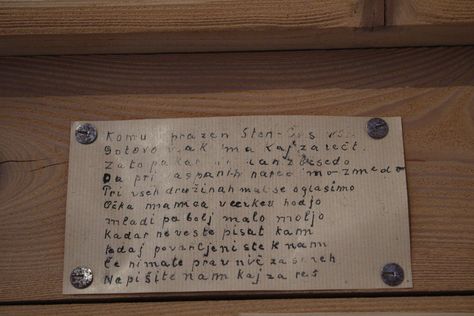 Komu prazen
Gotovo vsak ima kaj za rečt.
Zato pa kar dan z besedo
Da pri zaspanih narod mo z medo
Pri vseh družinah mal se oglasimo
Očka mamca v cerkev hodjo
mladi pa bolj malo moljo
Kadar ne veste pisat kam
tedaj povabljeni ste k nam
Če nimate prav nič za smeh
Napišite nam kaj za res